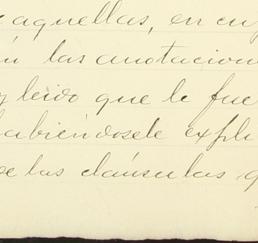 aquellas, en cuy
n las anotacion
y leido que le fue
habiéndosele expli
de las cláusulas q